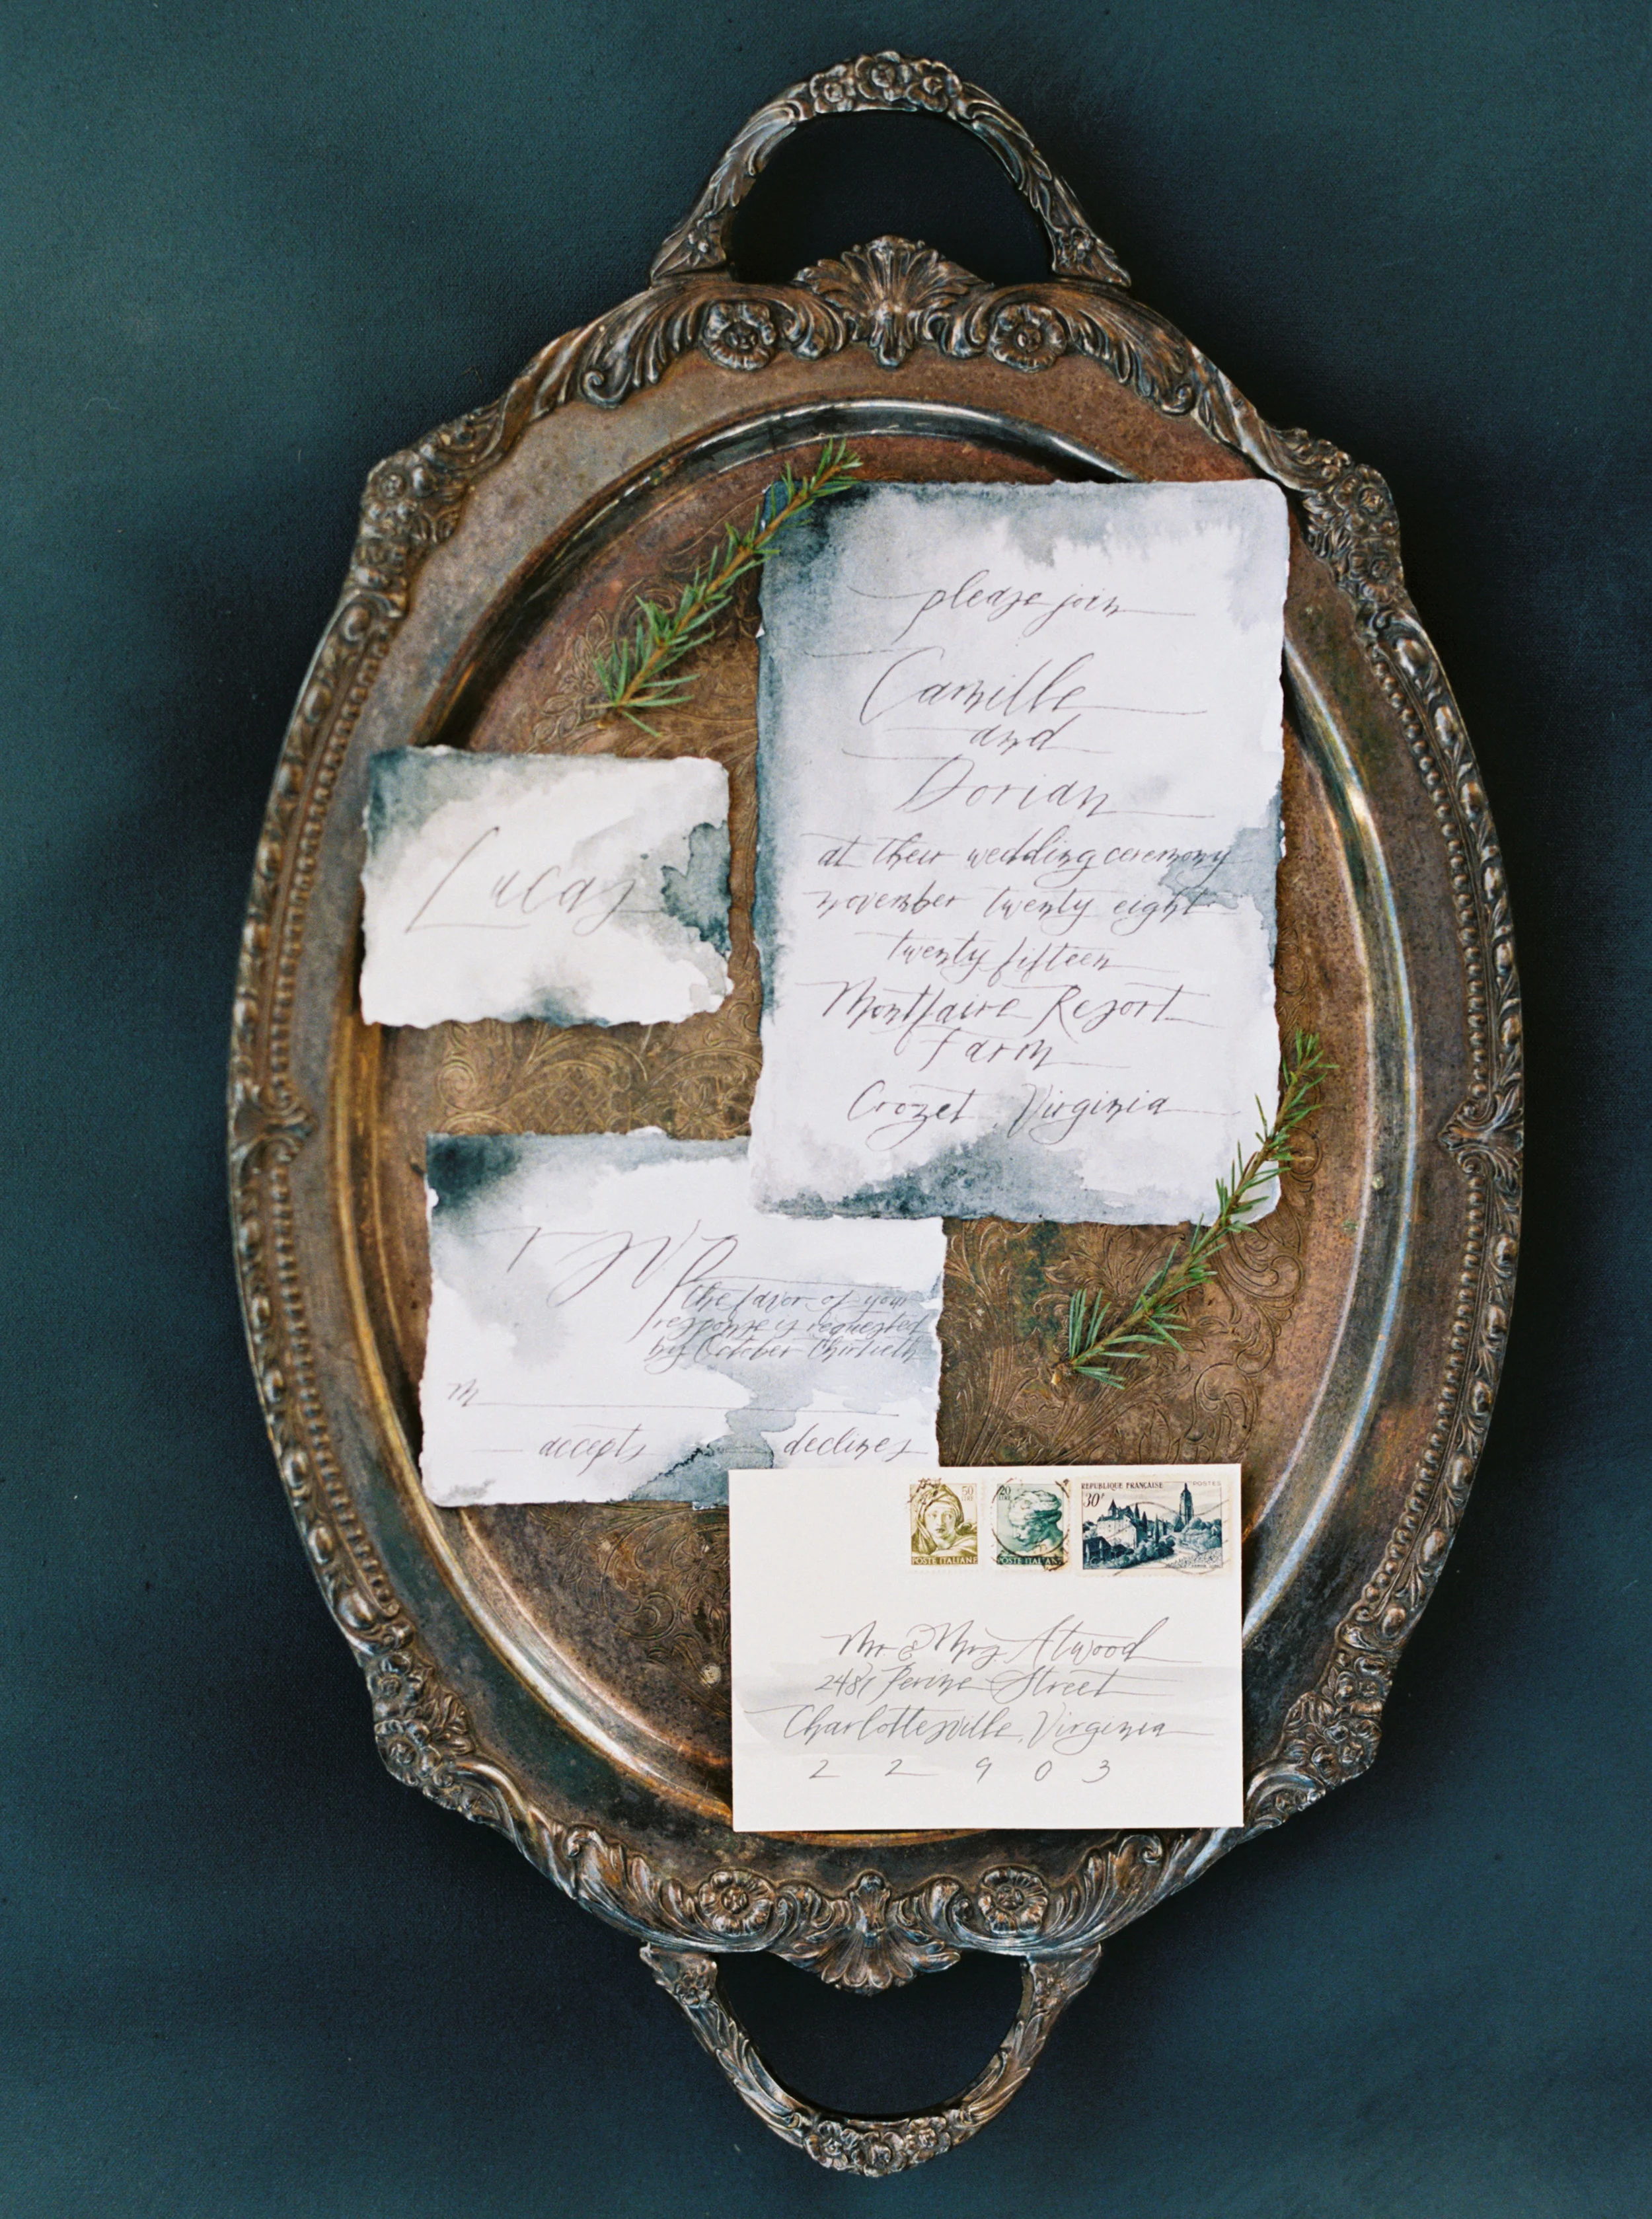 please join
Camille
and
Dorian
at their wedding ceremony
november twenty eight
twenty fifteen
Montfaire Resort
Farm
Crozet, Virginia
Lucas
rsvp
the favor of your
response is requested
by October thirtieth
M
accepts declines
50
LIRE
POSTE ITALIANE
20
POSTE ITALIANE
REPUBLIQUE FRANÇAISE POSTES
30F
Mr. & Mrs. Atwood
2481 Perine Street
Charlottesville, Virginia
22903